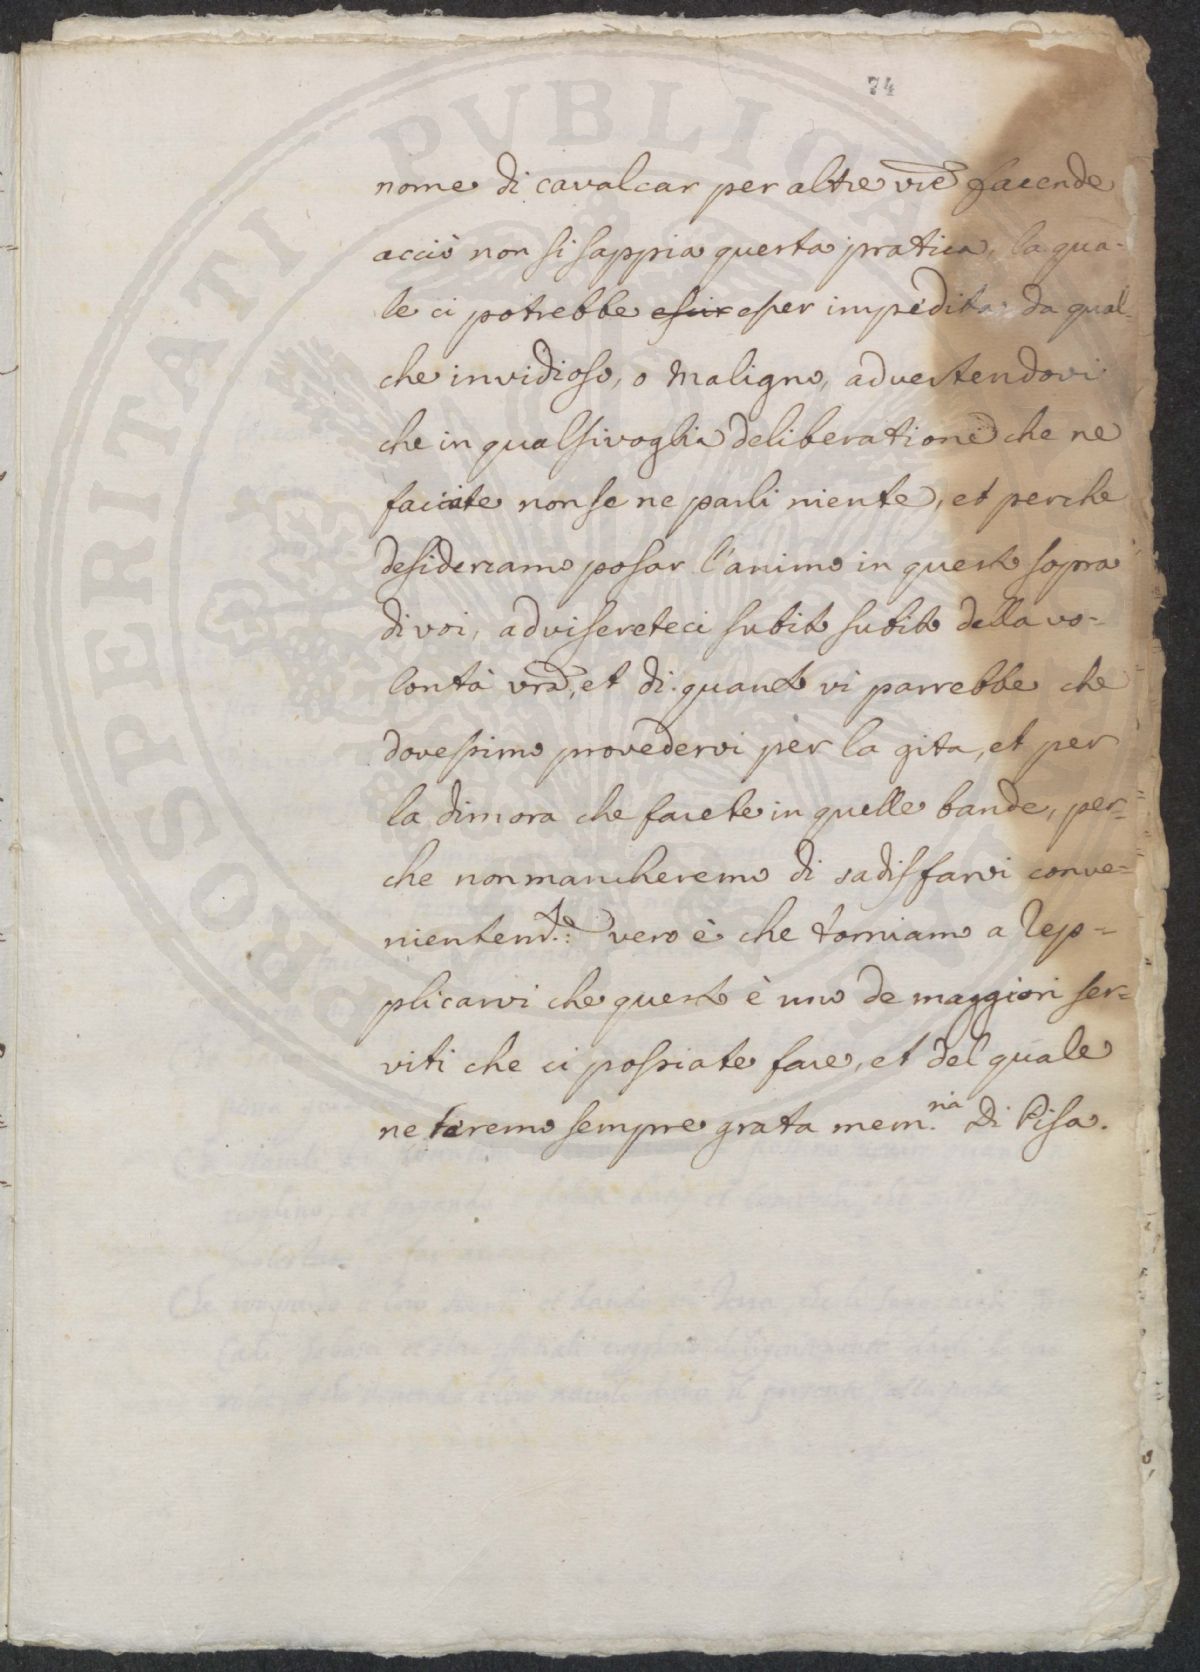 74
nome di cavalcar per altre vre facende
acciò non si sappia questa pratica, la qua-
le ci potrebbe esser impedita da qual-
che invidioso, o maligno, advertendovi
che in qualsivoglia deliberatione che ne
facciate non se ne parli niente, et perche
desideriamo posar l'animo in questo sopra
di voi, adviserete ci subito subito della vo=
lontà vra, et di quanto vi parrebbe che
dovessimo provedervi per la gita, et per
la dimora che farete in quelle bande, per=
che non mancheremo di sadisfarvi conve=
nientemte: vero è che torniamo a rep=
plicarvi che questo è uno de maggiori ser=
viti che ci possiate fare, et del quale
ne terremo sempre grata mem.ria Di Pisa.
PROSPERITATI PVBLICAE